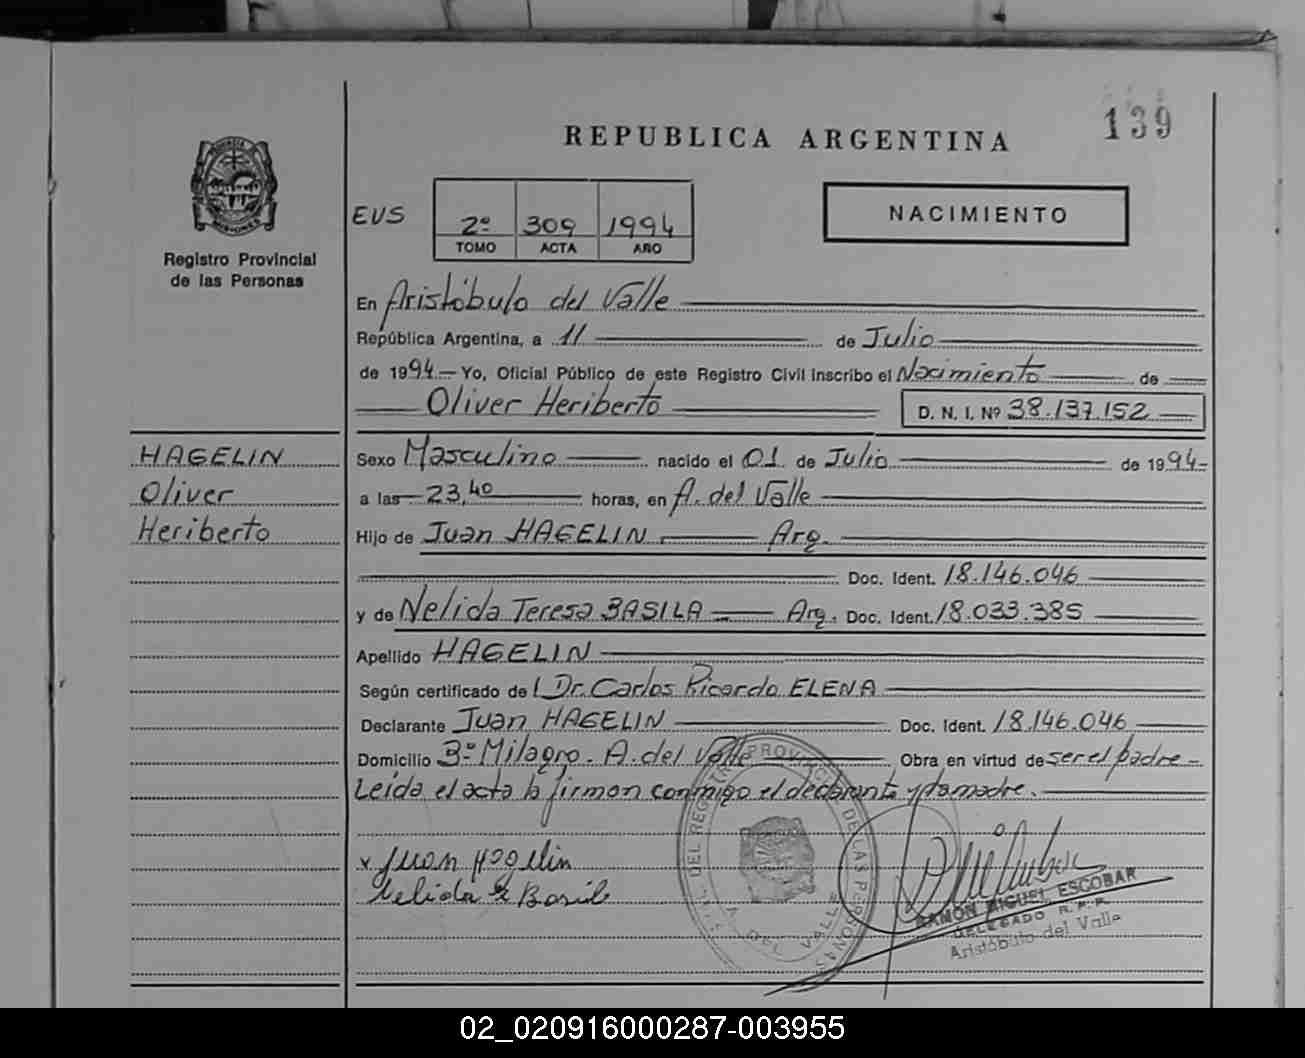 139
REPUBLICA ARGENTINA
PROVINCIA DE MISIONES
Registro Provincial
de las Personas
EVS
2º 309 1994
TOMO ACTA AÑO
NACIMIENTO
En Aristóbulo del Valle
República Argentina, a 11 de Julio
de 1994.- Yo, Oficial Público de este Registro Civil inscribo el Nacimiento de
Oliver Heriberto D. N. I. Nº 38.137.152
HAGELIN
Oliver
Heriberto
Sexo Masculino nacido el 01 de Julio de 1994-
a las 23,40 horas, en A. del Valle
Hijo de Juan HAGELIN Arg.
Doc. Ident. 18.146.046
y de Nelida Teresa BASILA Arg. Doc. Ident. 18.033.385
Apellido HAGELIN
Según certificado de l Dr. Carlos Ricardo ELENA
Declarante Juan HAGELIN Doc. Ident. 18.146.046
Domicilio Bº Milagro. A. del Valle Obra en virtud de ser el padre-
Leída el acta la firman conmigo el declarante y la madre.
x Juan Hagelin
Nelida
DEL REGISTRO PROVINCIAL DE LAS PERSONAS
A. DEL VALLE
RAMON MIGUEL ESCOBAR
DELEGADO R.P.P.
Aristóbulo del Valle
02_020916000287-003955